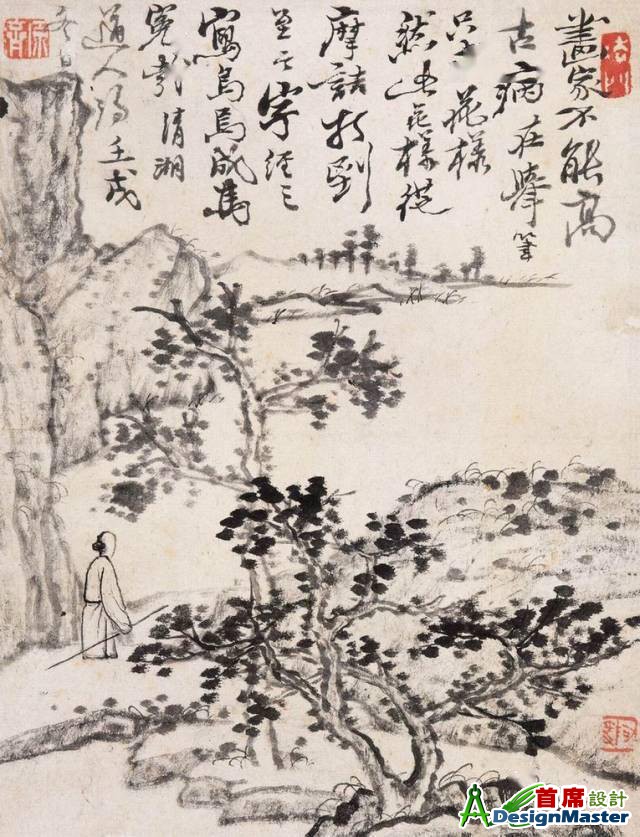 畫家不能高
古病在舉筆
只求花樣
然此花樣從
摩詰打到
至今字經三
寫烏焉成馬
冤哉清湘
道人濟壬戌
首席設計
ADesignMaster